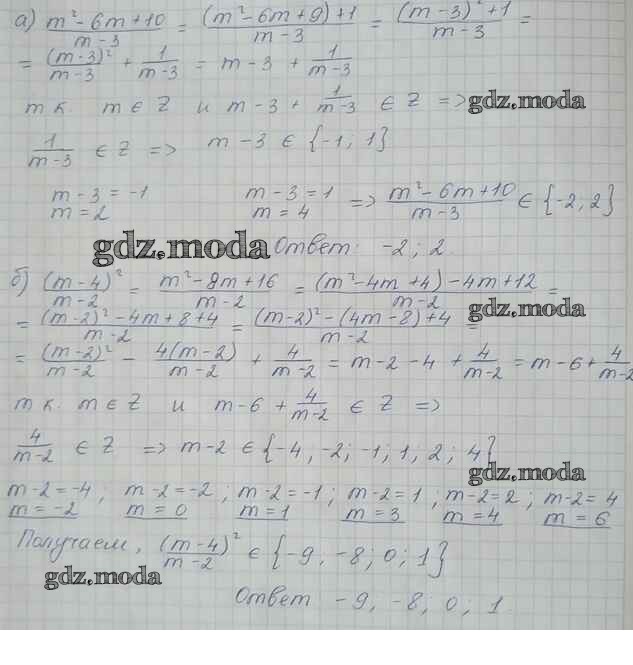 а) m² - 6m + 10 / m - 3 = (m² - 6m + 9) + 1 / m - 3 = (m - 3)² + 1 / m - 3 =
= (m - 3)² / m - 3 + 1 / m - 3 = m - 3 + 1 / m - 3
т к. m ∈ Z и m - 3 + 1 / m - 3 ∈ Z =>
gdz.moda
1 / m - 3 ∈ Z => m - 3 ∈ {-1; 1}
m - 3 = -1 m - 3 = 1 => m² - 6m + 10 / m - 3 ∈ {-2, 2}
m = 2 m = 4
gdz.moda
Ответ: -2; 2.
б) (m - 4)² / m - 2 = m² - 8m + 16 / m - 2 = (m² - 4m + 4) - 4m + 12 / m - 2 =
gdz.moda
= (m - 2)² - 4m + 8 + 4 / m - 2 = (m - 2)² - (4m - 8) + 4 / m - 2 =
= (m - 2)² / m - 2 - 4(m - 2) / m - 2 + 4 / m - 2 = m - 2 - 4 + 4 / m - 2 = m - 6 + 4 / m - 2
т к. m ∈ Z и m - 6 + 4 / m - 2 ∈ Z =>
4 / m - 2 ∈ Z => m - 2 ∈ {-4, -2; -1; 1, 2; 4}
gdz.moda
m - 2 = -4; m - 2 = -2, m - 2 = -1; m - 2 = 1; m - 2 = 2; m - 2 = 4
m = -2 m = 0 m = 1 m = 3 m = 4 m = 6
Получаем, (m - 4)² / m - 2 ∈ {-9, -8; 0; 1}
gdz.moda
Ответ -9, -8; 0; 1